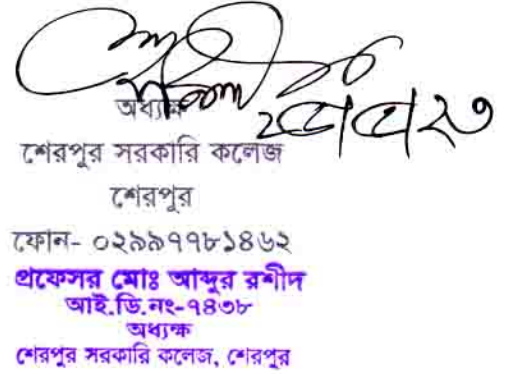 অধ্যক্ষ
শেরপুর সরকারি কলেজ
শেরপুর
ফোন- ০২৯৯৭৭৮১৪৬২
প্রফেসর মোঃ আব্দুর রশীদ
আই.ডি.নং-৭৪৩৮
অধ্যক্ষ
শেরপুর সরকারি কলেজ, শেরপুর